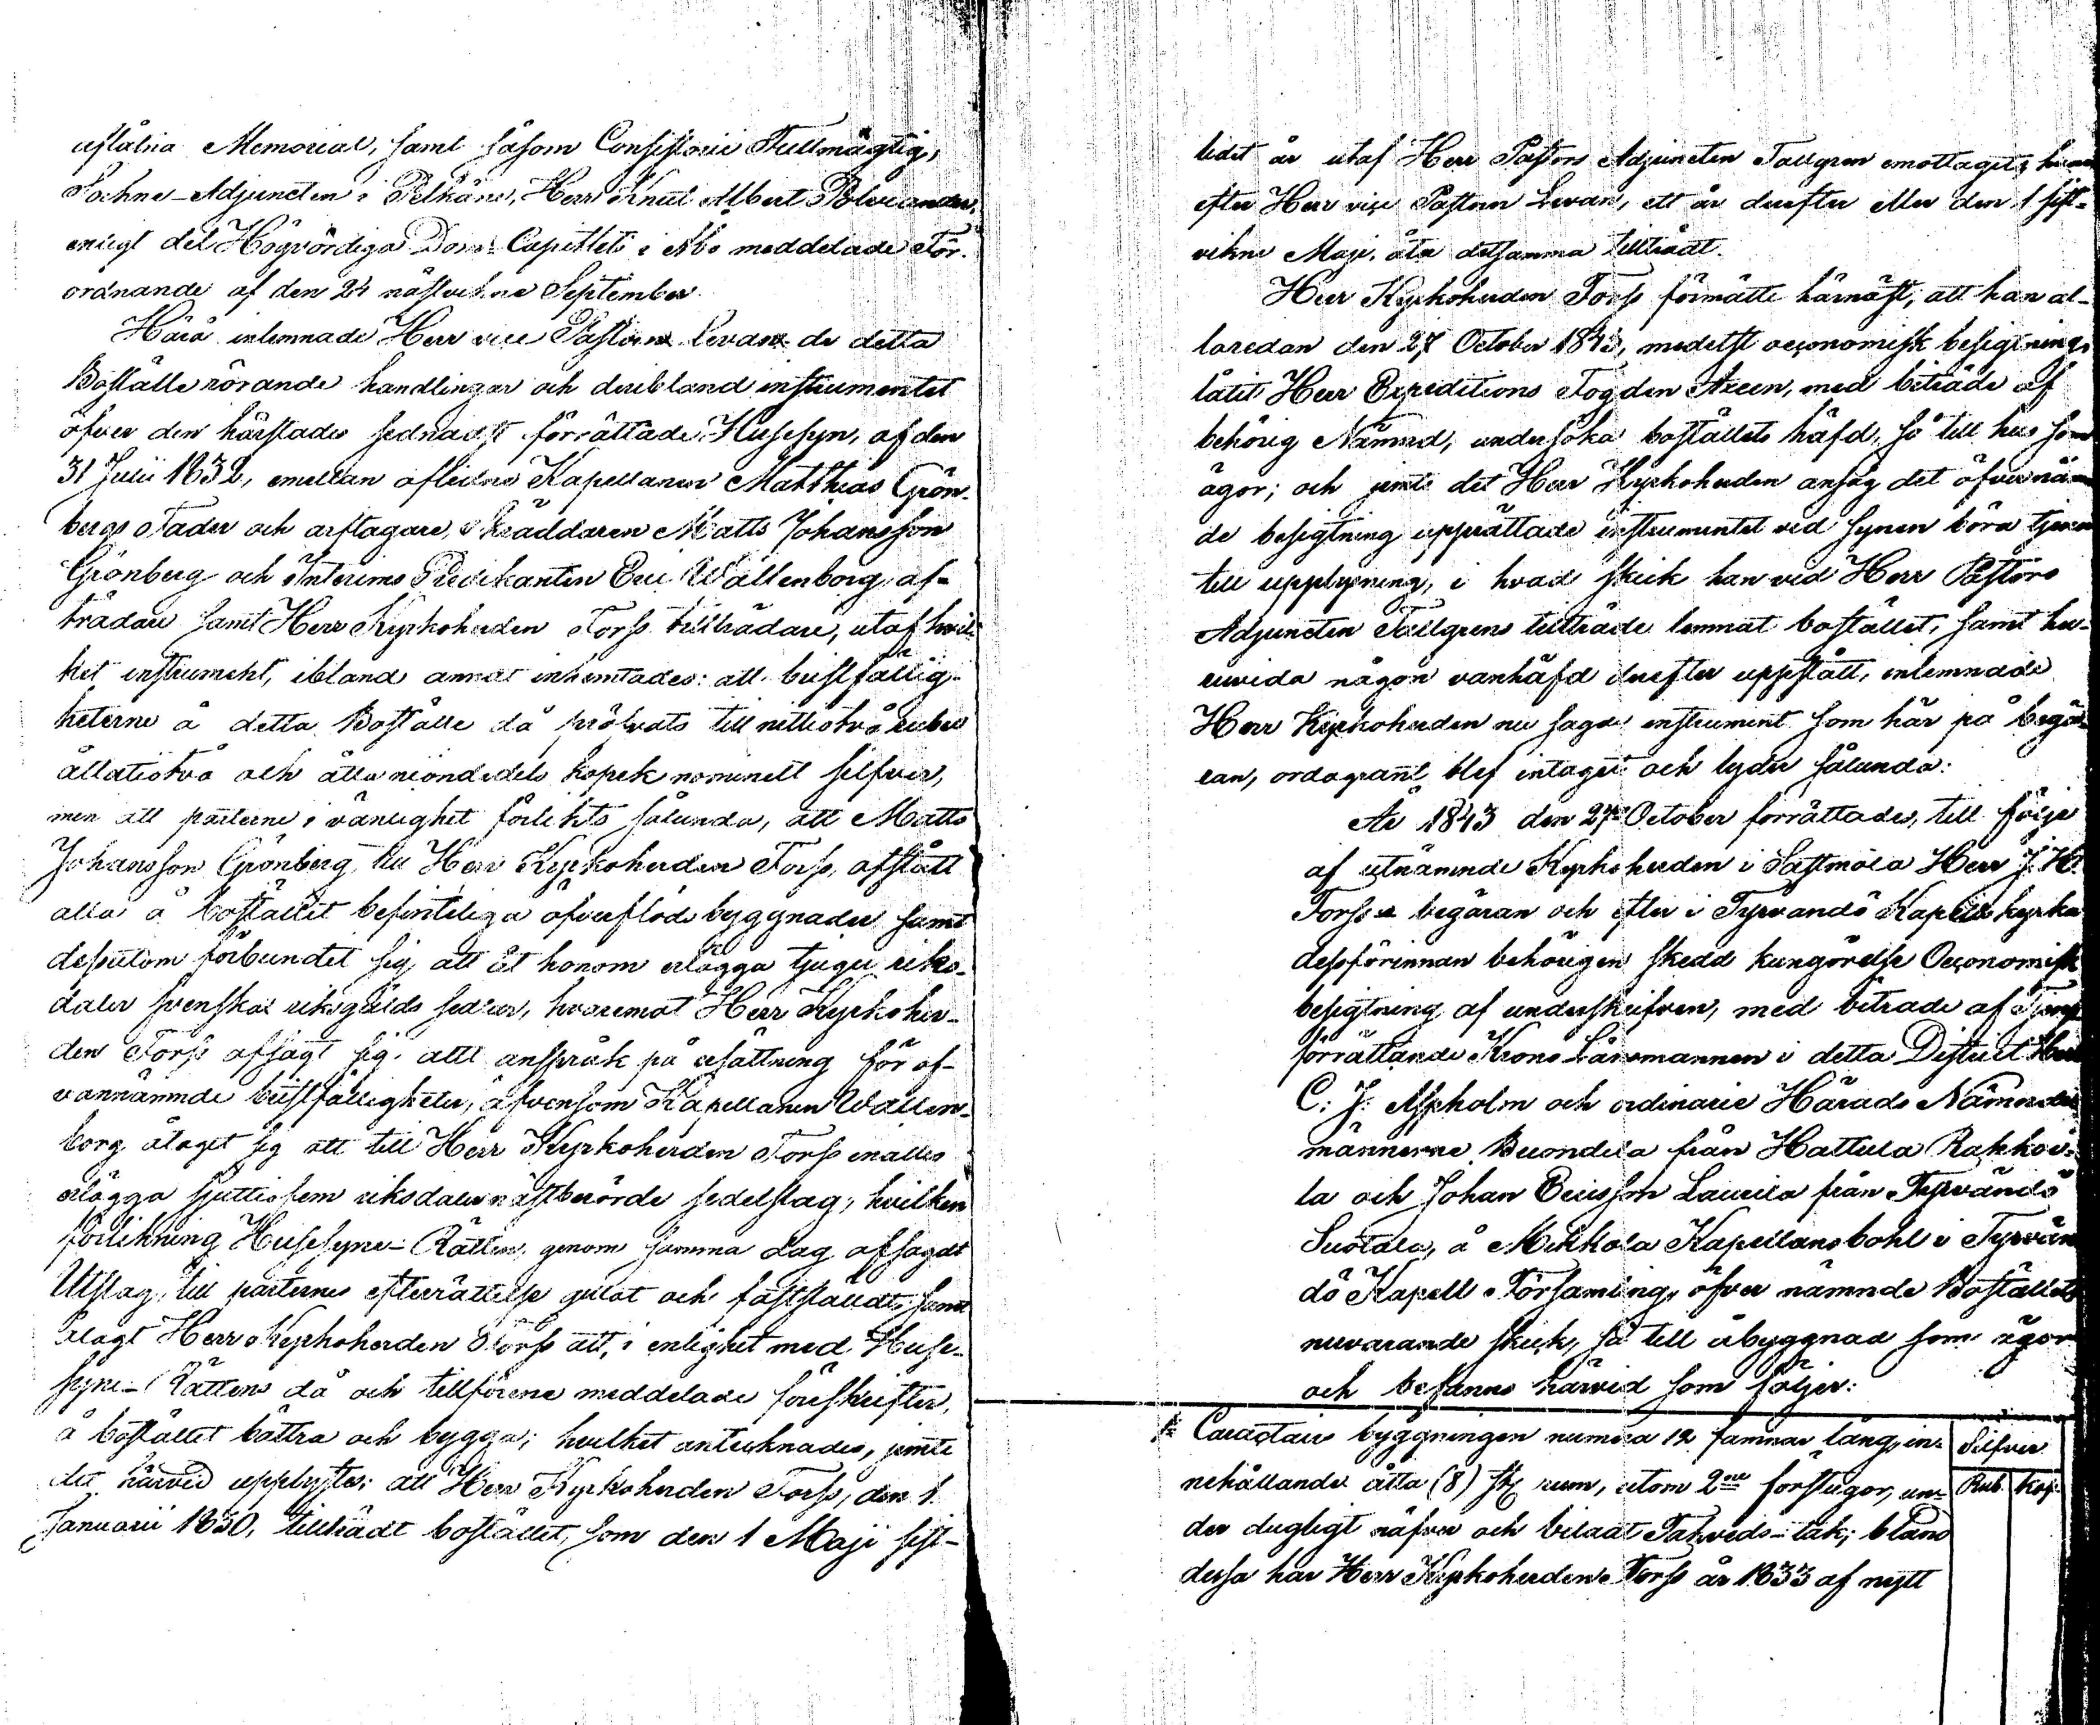 aflåtna Memorial, samt såsom Consistorii Fullmägtig,
Sockne-Adjuncten i Pelkäne, Herr Knut Albert Polviander,
enligt det Högvördiga Dom-Capitlets i Åbo meddelade För-
ordnande af den 24 nästvikne September.
Härå inlemnade Herr vice Pastoren Levan de detta
Boställe rörande handlingar och deribland instrumentet
öfver den härstädes sednast förrättade Husesyn, af den
31 Julii 1832, emellan aflidne Kapellanen Matthias Grön-
bergs Fader och arftagare, Skräddaren Matts Johansson
Grönberg och Interims Predikanten Eric Wallenborg, af-
trädare samt Herr Kyrkoherden Forss tillträdare, utaf hvil-
ket instrument, ibland annat inhemtades: att bristfällig-
heterne å detta Boställe då pröfvats till nittiotvå rubel
åttatiotvå och åtta niondedels kopek nominelt silfver,
men att parterne i vänlighet förlikts sålunda, att Matts
Johansson Grönberg till Herr Kyrkoherden Forss, afstått
alla å bostället befinteliga öfverflöds byggnader samt
dessutom förbundet sig att åt honom erlägga tjugu riks-
daler svenska riksgälds sedlar, hvaremot Herr Kyrkoher-
den Forss afsagt sig allt anspråk på ersättning för of-
vannämnde bristfälligheter, äfvensom Kapellanen Wallen-
borg åtaget sig att till Herr Kyrkoherden Forss inalles
erlägga sjuttiofem riksdaler nästberörde sedelslag, hvilken
förlikning Husesyns-Rätten, genom samma dag afsagdt
Utslag, till parternes efterrättelse gillat och fastställdt, samt
ålagt Herr Kyrkoherden Forss att, i enlighet med Huse-
syns-Rättens då och tillförene meddelade föreskrifter,
å bostället bättra och bygga; hvilket antecknades, jemte
det härvid upplystes: att Herr Kyrkoherden Forss, den 1
Januarii 1830, tillträdt bostället, som den 1 Maji sist-
ledit år utaf Herr Pastors Adjuncten Tallgren emottagits,
efter Herr vice Pastorn Levan, ett år derefter eller den 1 sist-
vikne Maji, åter detsamma tillträdt.
Herr Kyrkoherden Forss förmälte härnäst, att han al-
laredan den 27 October 1843, medelst oeconomisk besigtning,
låtit Herr Expeditions Fogden Axeen, med biträde af
behörig Nämnd, undersöka boställets häfd, så till hus som
ägor; och jemte det Herr Kyrkoherden ansåg det öfver näm-
de besigtning upprättade instrumentet vid synen böra tjena
till upplysning, i hvad skick han vid Herr Pastors
Adjuncten Tallgrens tillträde lemnat bostället, samt hu-
ruvida någon vanhäfd derefter uppstått, inlemnade
Herr Kyrkoherden nu sagde instrument som här på begä-
ran, ordagrant blef intaget och lyder sålunda:
År 1843 den 27de October förrättades, till följe
af utnämnde Kyrkoherden i Sastmola Herr J. H.
Forss's begäran och efter i Tyrvändö Kapells kyrka
dessförinnan behörigen skedd kungörelse Oeconomisk
besigtning af underskrifven, med biträde af Tjenst
förrättande Krono Länsmannen i detta District Herr
C. J. Aspholm och ordinarie Härads Nämnde-
männerne Buondila från Hattula Rahkoi-
la och Johan Ericsson Laurila från Tyrvändö
Suotala, å Mikkola Kapellansbohl i Tyrvän
dö Kapell Församling, öfver nämnde Boställets
nuvarande skick, så till åbyggnad som ägor
och befanns härvid som följer:
Silfver
Rub. Kop.
1: Caractairs byggningen numera 12 famnar lång, in-
nehållande åtta (8) st rum, utom 2ne förstugor, un-
der dugligt näfver och bilaat Takveds-tak; bland
dessa har Herr Kyrkoherden Forss år 1833 af nytt